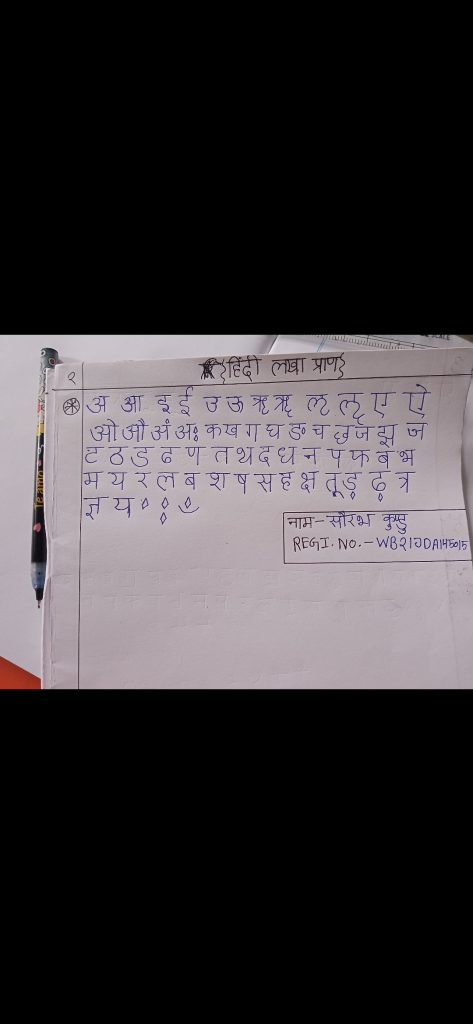 २
{हिंदी लखा प्राण}
अ आ इ ई उ ऊ ऋ ॠ ऌ ॡ ए ऐ
ओ औ अं अः क ख ग घ ङ च छ ज झ ज
ट ठ ड ढ ण त थ द ध न प फ ब भ
म य र ल ब श ष स ह क्ष तू ड़ ढ़ त्र
ज्ञ य
नाम - सौरभ कुण्डु
REGI. NO. - WB21JDA145015
Teamn